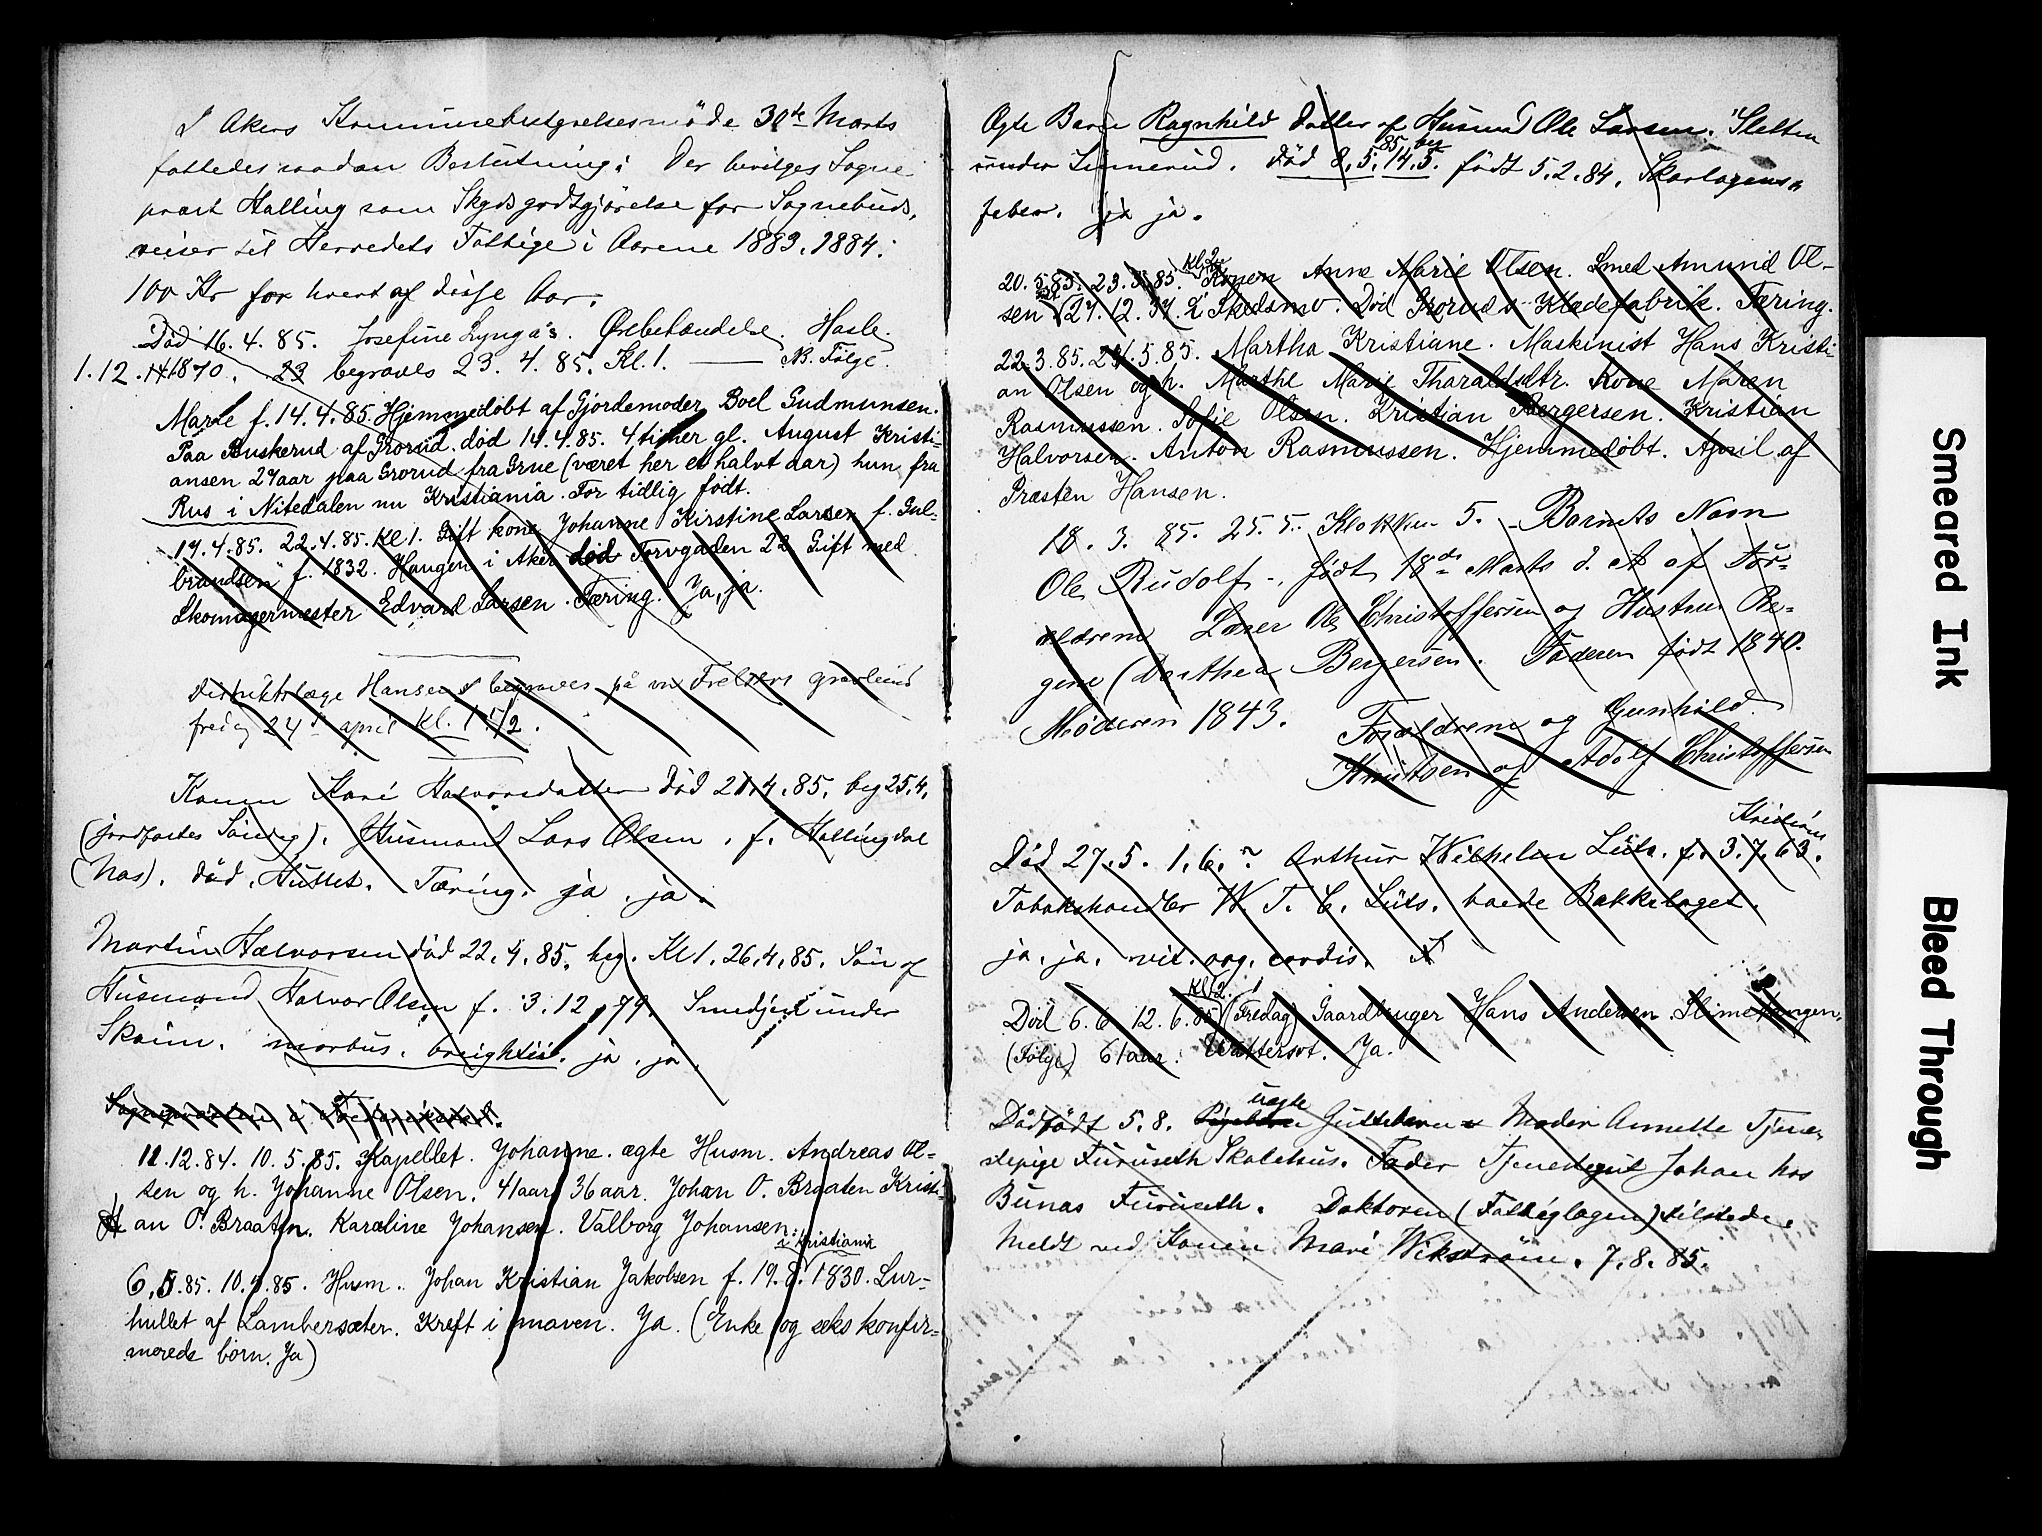 I Akers Kommunebestyrelsesmöde 30te Marts
fattedes saadan Beslutning: Der bevilges Sogne
præst Halling som Skydsgodtgjörelse for Sognebuds,
reiser til Herredets Fattige i Aarene 1883. 1884:
100 Kr for hvert af disse Aar.
Död 16.4.85. Josefine Lyngås. Hasle.
1.12.1870. 23 begraves 23.4.85. Kl. 1. — NB. Følge
Marie f. 14.4.85. Hjemmedöbt af Gjordemoder Boel Gudmunsen.
Paa Buskerud af Grorud. död 14.4.85. 4 timer gl. August Kristi-
ansen 27 aar paa Grorud fra Grue (været her et halvt aar) hun fra
Rus i Nitedalen nu Kristiania. For tidlig født.
17.4.85. 22.4.85. Kl 1. Gift kone Johanne Kirstine Larsen f. Gul-
brandsen f. 1832. Haugen i Aker död Torvgaden 22 Gift med
Skomagermester Edvard Larsen. Tæring. Ja, ja.
Distriktslæge Hansen begraves på vor Frelsers gravlund
fredag 24de april Kl. 1 1/2.
Konen Kari Halvorsdatter Död 21.4.85. beg 25.4.
(jordfæstes Söndag). Husmand Lars Olsen. f. Hallingdal
(Nas). död. Huset. Tæring. ja. ja.
Martin Halvorsen död 22.4.85. beg. Kl 1. 26.4.85. Sön af
Husmand Halvor Olsen f. 3.12.79. Smedjen under
Sköien. morbus. breightii. ja. ja.
11.12.84. 10.5.85. Kapellet. Johanne. ægte Husm. Andreas Ol-
sen og h. Johanne Olsen. 41 aar 36 aar. Johan O. Braaten Kristi-
an O. Braaten. Karoline Johansen. Valborg Johansen.
i Kristiania
6.5.85. 10.5.85. Husm. Johan Kristian Jakobsen f. 19.8.1830. Lur-
hullet af Lambersæter. Kreft i maven. Ja. (Enke og seks konfir-
merede börn. Ja)
Ægte Barn Ragnhild datter af Husmd Ole Larsen. Sletten
85. beg
under Linnerud. Död 8.5. 14.5. födt 5.2.84. Skarlagens
feber. ja ja.
Kl 2
20.5.85. 23.5.85. Konen Anne Marie Olsen. Smed Amund Ol-
sen 27.12.37. i Skedsmo. Död Groruds Klædefabrik. Tæring.
22.3.85. 24.5.85. Martha Kristiane. Maskinist Hans Kristi-
an Olsen og h. Marthe Marie Tharaldsdtr. Kone Maren
Rasmussen. Sofie Olsen. Kristian Bergersen. Kristian
Halvorsen. Anton Rasmussen. Hjemmedöbt. April af
Præsten Hansen.
18.3.85. 25.5. Klokken 5. Barnets Navn
Ole Rudolf. födt 18de Marts d. A af For-
ældrene Lærer Ole Christoffersen og Hustru Be-
gine Dorthea Bergersen. Faderen födt 1840.
Moderen 1843. Forældrene og Gunhild
Knutsen og Adolf Christoffersen
Kristiania
Död 27.5. 1.6.? Arthur Wilhelm Lüts. f. 3.7.63.
Tobakshandler W. T. C. Lüts. boede Bækkelaget.
ja. ja. vit. org. cordis.
Kl 2
Död 6.6 12.6.85 (Fredag) Gaardbruger Hans Andersen Slimehaugen.
(Følge) 61 aar. Wattersot. Ja.
uægte
Dödfödt 5.8. Guttebarn Moder Annette Tjene-
stepige Furuseth Skolehus. Fader Tjenestegut Johan hos
Bunas Furuseth. Doktoren (Fattiglægen) tilstede.
Meldt ved Konen Mari Wikström. 7.8.85.
Smeared Ink
Bleed Through